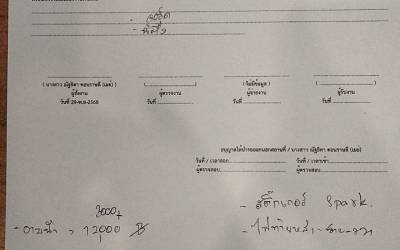 ( นางสาว ณัฐธิดา ดอนราษฎี (เมย์) ) (............................) ( ไม่มีข้อมูล ) (............................)
ผู้สั่งงาน ผู้ตรวจงาน ผู้จ่ายงาน ผู้รับงาน
วันที่ 29-พ.ย-2568 วันที่ .................... วันที่ .................... วันที่ ....................
อนุญาตให้นำรถออกนอกสถานที่ / นางสาว ณัฐธิดา ดอนราษฎี (เมย์)
วันที่ / เวลาออก.................... วันที่ / เวลาเข้า....................
ผู้ตรวจสอบ.................... ผู้ตรวจสอบ....................
3000+
- = 12,000 B
- สติ๊กเกอร์ Spark.
- ไฟท้ายหลัง - ซ้าย - ขวา